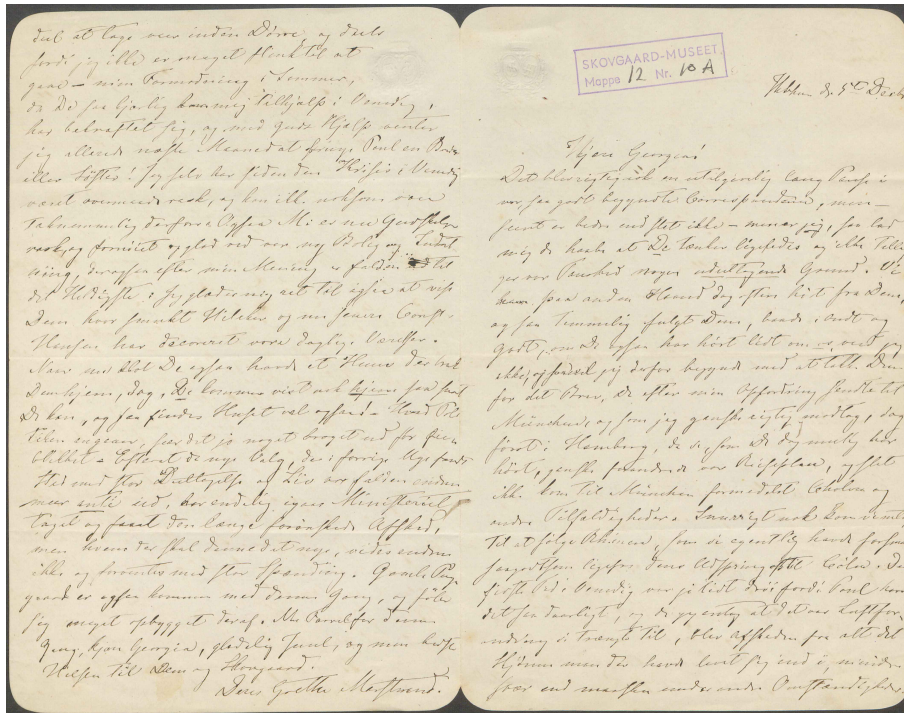 del at tage vare inden Dørre, og dels
fordi jeg ikke er meget flink til at
gaae – min Formodning i Sommer,
da De saa kjærlig kom mig til hjælp i Venedig,
har bekræftet sig, og med Guds Hjælp venter
jeg allerede næste Maaned at bringe Poul en Broder
eller Søster! Jeg selv har siden den Krisis i Venedig
været overmaade rask, og kan ikke noksom være
taknemmelig derfor. Ogsaa Mi er nu Gudskelov
rask, og fornøiet og glad ved vor ny Bolig og Indret
ning, der ogsaa efter min Mening er falden ud til
det Heldigste. Jeg glæder mig ret til ogsaa at vise
Dem hvor smukt Hilker og nu senere Const.
Hansen har decoreret vore daglige Værelser.
Naar nu blot De ogsaa havde et Huus der trak
Dem hjem, dog, De kommer vist nok hjem saa snart
De kan, og saa findes Huset vel ogsaa! – Hvad Poli
tiken angaaer, seer det jo noget broget ud for Øien
blikket. Efterat de nye Valg, der i forrige Uge fandt
Sted med stor Deeltagelse og Liv var falden endnu
mere anti ud, har endelig igaar Ministeriet
taget og faaet den længe forønskede Afsked,
men hvem der skal danne det nye, vides endnu
ikke og forventes med stor Spænding. Gamle
er ogsaa kommen med denne Gang, og føler
sig meget opbygget deraf. Nu Farvel for denne
Gang, kjære Georgia, glædelig Juul, og mange kjærlige
Hilsen til Dem og Skovgaard.
Deres Grethe Marstrand.
SKOVGAARD-MUSEET
Mappe 12 Nr. 10 A
Kbhvn d. 5te Decbr
Kjære Georgia!
Det blev rigtignok en utilgivelig lang Pause i
vor saa godt begyndte Correspondance, men –
seent er bedre end slet ikke – mener jeg, saa lad
mig da haabe at De tænker ligesaadan og ikke
vor Taushed nogen Grund. Vi
have paa anden Haand dog oftere hørt fra Dem,
og saa temmelig fulgt Dem, baade i ondt og
godt, om De ogsaa har hørt lidt om os, veed jeg
ikke, og jeg derfor begynde med at takke Dem
for det Brev, De efter min Opfordring sendte til
München, og som jeg ganske rigtig modtog, dog
først i Hamborg, da vi, som De dog muelig har
hørt, ganske forandrede vor Reiseplan, og slet
ikke kom til München formedelst Cholera og
andre Tilfældigheder. Snurrigt nok kom vi
til at følge Rhinen, som vi egentlig havde
ligefra dens Udspring til Cöln. Den
sidste Tid i Venedig var jo lidt drøi fordi Poul
det saa daarligt, og da jeg at det var Luftfor
andring vi trængte til, blev Afskeden fra alt det
Skjønne man der havde levet sig ind i, mindre
svær end maaskee under andre Omstændigheder